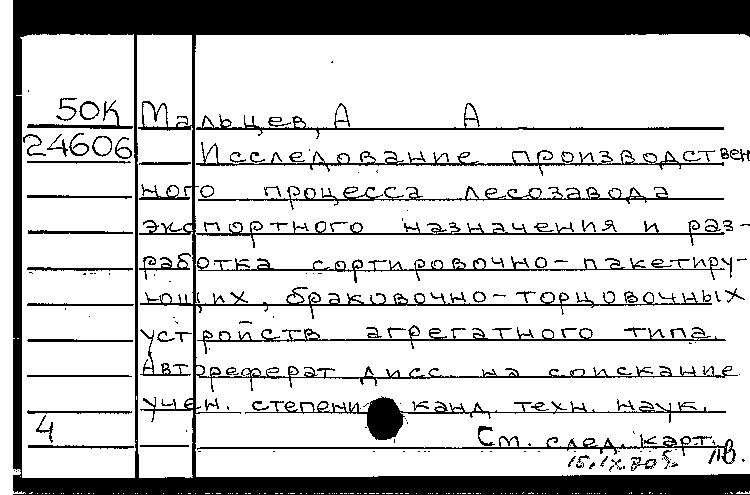 50К Мальцев, А А
24606 Исследование производствен
ного процесса лесозавода
экспортного назначения и раз-
работка сортировочно-пакетиру-
ющих, браковочно-торцовочных
устройств агрегатного типа.
Автореферат дисс на соискание
учен. степени канд техн. наук.
4 См. след. карт.
15.IX.70г.